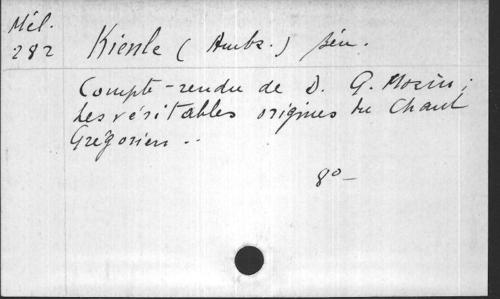 Mél.
282 Kienle (Ambr.) bén.
Compte-rendu de D. G. Morin;
Les véritables origines du Chant
Grégorien ..
8º